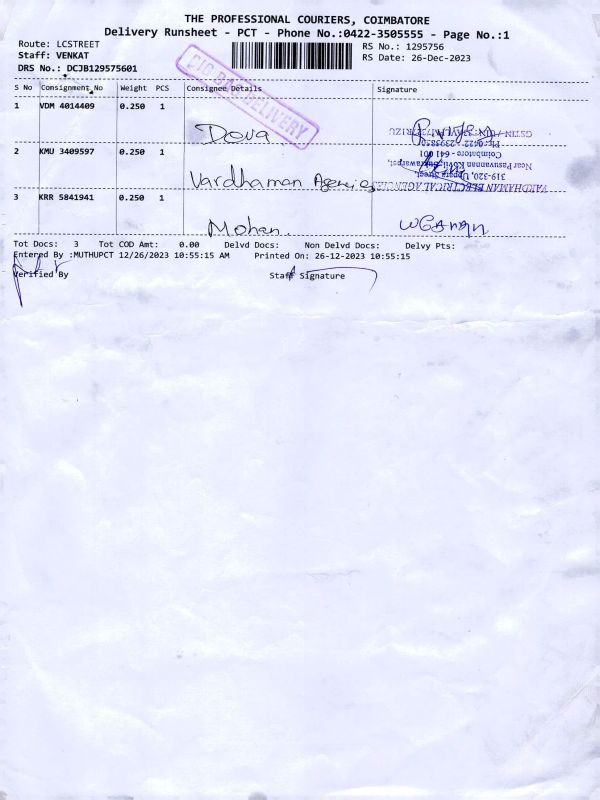 THE PROFESSIONAL COURIERS, COIMBATORE
Delivery Runsheet - PCT - Phone No.:0422-3505555 - Page No.:1
Route: LCSTREET
RS No.: 1295756
Staff: VENKAT
RS Date: 26-Dec-2023
DRS No.: DCJB129575601
S No Consignment No Weight PCS Consignee Details Signature
DELIVERY
1 VDM 4014409 0.250 1
Deva
2 KMU 3409597 0.250 1
Vardhaman Agencies
VARDHAMAN ELECTRICAL AGENCIES
319-320, Uppara Street,
Near Pasuvannan Kovil
Coimbatore - 641 001
3 KRR 5841941 0.250 1
Mohan
Tot Docs: 3 Tot COD Amt: 0.00 Delvd Docs: Non Delvd Docs: Delvy Pts:
Entered By :MUTHUPCT 12/26/2023 10:55:15 AM Printed On: 26-12-2023 10:55:15
Verified By Staff Signature